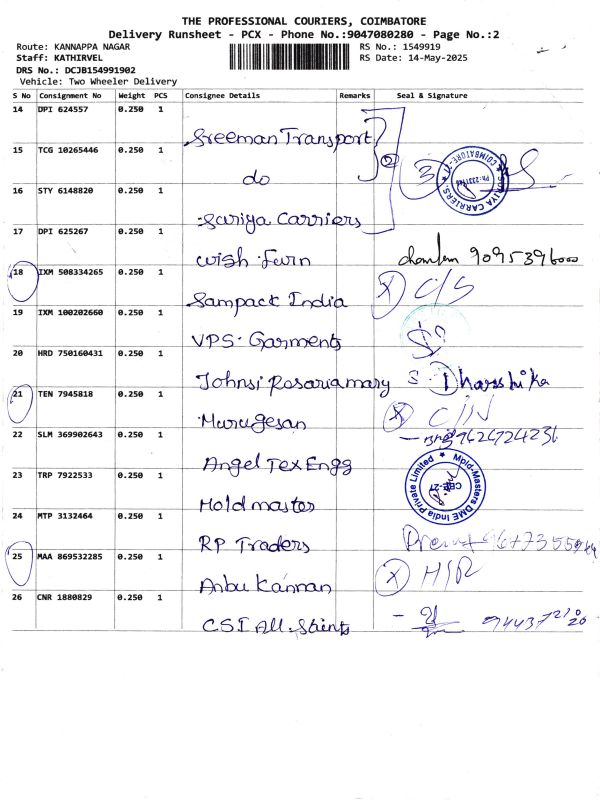 THE PROFESSIONAL COURIERS, COIMBATORE
Delivery Runsheet - PCX - Phone No.:9047080280 - Page No.:2
Route: KANNAPPA NAGAR
RS No.: 1549919
Staff: KATHIRVEL
RS Date: 14-May-2025
DRS No.: DCJB154991902
Vehicle: Two Wheeler Delivery
S No Consignment No Weight PCS Consignee Details Remarks Seal & Signature
14 DPI 624557 0.250 1 Sreeman Transport
15 TCG 10265446 0.250 1 do 2 3
SURIYA CARRIERS COIMBATORE-27
16 STY 6148820 0.250 1 Suriya Carriers
17 DPI 625267 0.250 1 Wish Furn 9095396000
18 IXM 508334265 0.250 1 Sampack India X C/S
19 IXM 100202660 0.250 1 VPS. Garments
20 HRD 750160431 0.250 1 Johnsi Rosariamary S. Dharshika
21 TEN 7945818 0.250 1 Murugesan X C/N
22 SLM 369902643 0.250 1 Angel Tex Engg 9626724236
23 TRP 7922533 0.250 1 Mold master
Mold-Masters DME India Private Limited CBE-27
24 MTP 3132464 0.250 1 RP Traders
25 MAA 869532285 0.250 1 Anbu Kannan X
26 CNR 1880829 0.250 1 CSI All. Saints